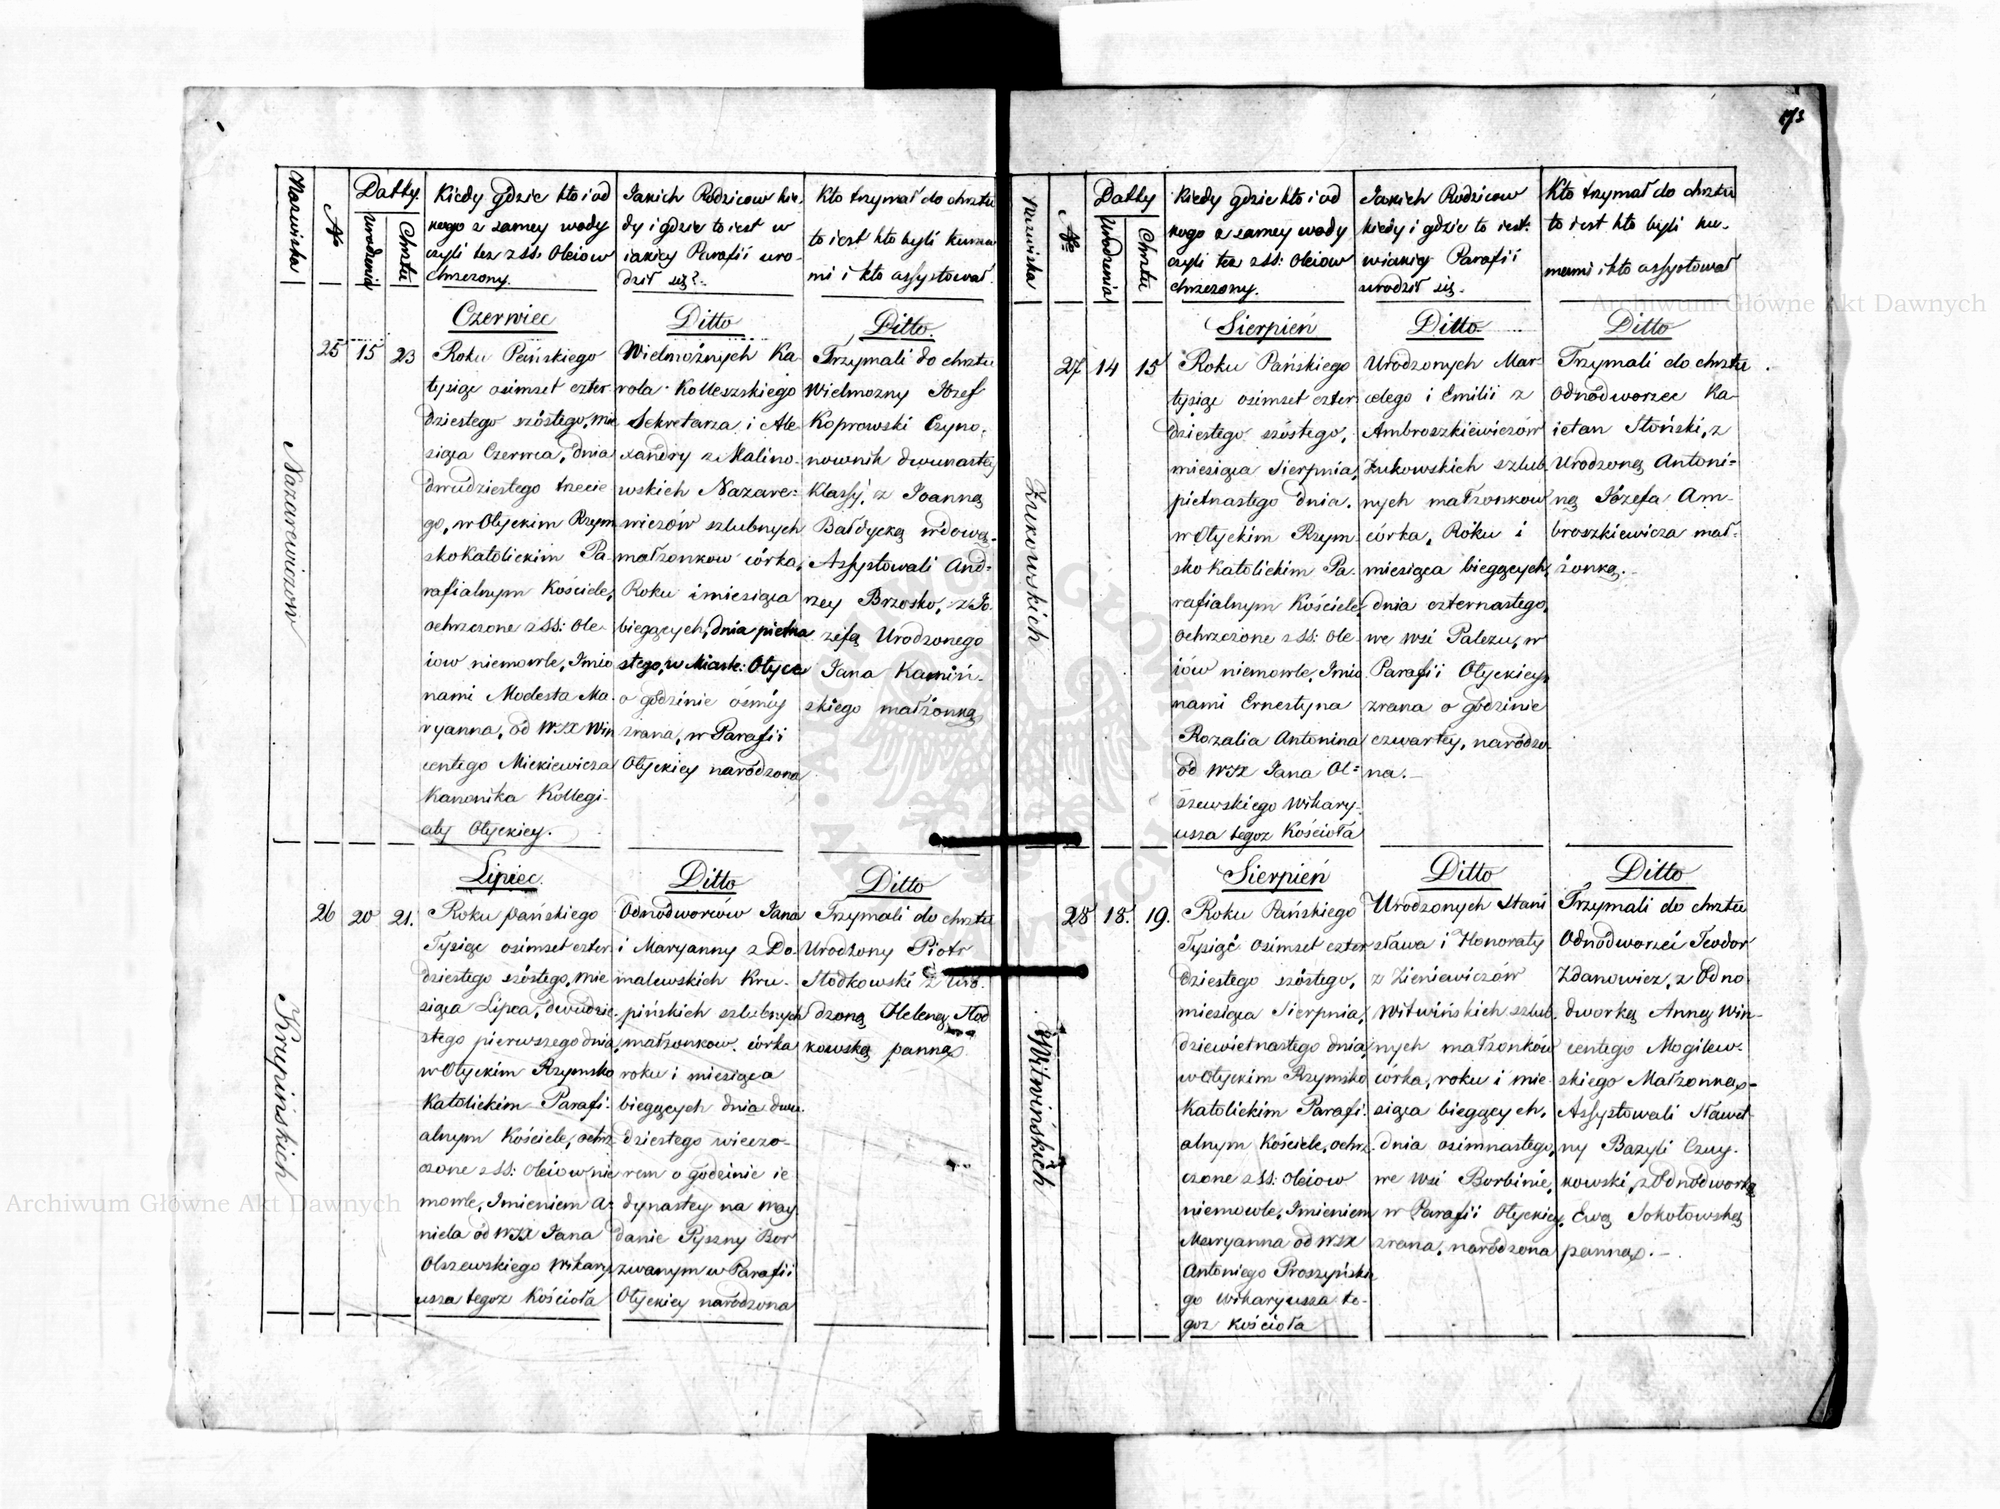 173
Nazwiska
№
Datty.
Urodzenia
Chrztu
Kiedy gdzie kto i od
kogo z samey wody
czyli tez z SS: Oleiow
chrzczony.
Jakich Rodzicow kie,
dy i gdzie to iest w
iakiey Parafii uro-
dził się?.
Kto trzymał do chrztu
to iest kto byli kuma
mi i kto assystował.
Nazarewiczow
25
15
23
Czerwiec
Roku Pańskiego
tysiąc osimset czter
dziestego szóstego, mie
siąca Czerwca, dnia
dwudziestego trzecie
go, w Ołyckim Rzym
sko Katolickim Pa-
rafialnym Kościele,
ochrzczone z SS: Ole-
iow niemowle, Imio
nami Modesta Ma-
ryanna, od WJX Win
centego Mickiewicza
Kanonika Kollegi-
aty Ołyckiey.
Ditto
Wielmożnych Ka-
rola Kolleszskiego
Sekretarza i Ale-
xandry z Malino-
wskich Nazare-
wiczów szlubnych
małzonkow córka,
Roku i miesiąca
biegących, dnia piętna
stego, w Miaste: Ołyce
o godzinie osmiy
zrana, w Parafii
Ołyckiey narodzona
Ditto.
Trzymali do chrztu
Wielmozny Józef
Koprowski Czyno,
nownik dwunastey
Klassy, z Joanną
Bałdycką wdową.
Assystowali And-
rzey Brzosko, z Jo
zefą Urodzonego
Jana Kamiń-
skiego małżonką
Krupińskich
26
20
21.
Lipiec.
Roku pańskiego
Tysiąc osimset czter
dziestego szóstego, mie
siąca Lipca, dwudzie-
stego pierwszego dnia,
w Ołyckim Rzymsko
Katolickim Parafi-
alnym Kościele, ochrz
czone z SS: Oleiow nie
mowle, Imieniem A-
niela od WJX Jana
Olszewskiego Wikary
usza tegoz Kościoła
Ditto
Odnodworców Jana
i Maryanny z Do-
malewskich Kru-
pińskich szlubnych
małzonkow córka
roku i miesiąca
biegących dnia dwu-
dziestego wieczo-
rem o godzinie ie
dynastey na May
danie Pyszny Bor
zwanym w Parafii
Ołyckiey narodzona
Ditto
Trzymali do chrztu
Urodzony Piotr
Słodkowski z Uro-
dzoną Heleną Słod
kowską panną.
Nazwiska
№
Datty
Urodzenia
Chrztu
Kiedy gdzie kto i od
kogo z samey wody
czyli tez z SS: Oleiow
chrzczony.
Jakich Rodzicow
kiedy i gdzie to iest.
w iakiey Parafii
urodził się.
Kto trzymał do chrztu
to iest kto byli ku-
mami i kto assystował
Żukowskich
27
14
15
Sierpień
Roku Pańskiego
tysiąc osimset czter
dziestego szóstego,
miesiąca Sierpnia,
piętnastego dnia.
w Ołyckim Rzym-
sko Katolickim Pa-
rafialnym Kościele,
ochrzczone z SS: Ole-
iów niemowle, Imio
nami Ernestyna
Rozalia Antonina
od WJX Jana Ol-
szewskiego Wikary-
usza tegoz Kościoła
Ditto
Urodzonych Mar-
celego i Emilii z
Ambroszkiewiczów
Żukowskich szlub
nych małżonkow
córka, Roku i
miesiąca biegących,
dnia czternastego,
we wsi Palczu, w
Parafii Ołyckiey,
zrana o godzinie
czwartey, narodzo-
na.
Ditto
Trzymali do chrztu
Odnodworzec Ka-
ietan Słoński, z
Urodzoną Antoni-
ną Józefa Am-
broszkiewicza mał-
żonką.
Witwińskich
28
18.
19.
Sierpień
Roku Pańskiego
Tysiąc osimset czter
dziestego szóstego,
miesiąca Sierpnia,
dziewiętnastego dnia,
w Ołyckim Rzymsko
Katolickim Parafi-
alnym Kościele, ochrz-
czone z SS: Oleiow
niemowle, Imieniem
Maryanna od WJX
Antoniego Proszyńskie
go Wikaryusza te-
goz kościoła
Ditto
Urodzonych Stani
sława i Honoraty
z Zieniewiczów
Witwińskich szlub,
nych małzonków
córka, roku i mie-
siąca biegących,
dnia osimnastego,
we wsi Borbinie,
w Parafii Ołyckiey,
zrana, narodzona
Ditto
Trzymali do chrztu
Odnodworzec Teodor
Zdanowicz, z Odno-
dworką Anną Win-
centego Mogilew-
skiego Małżonką-
Assystowali Sławet-
ny Bazyli Czuy-
kowski, z Odnodworką
Ewą Sokołowską
panną.
Archiwum Główne Akt Dawnych
Archiwum Główne Akt Dawnych